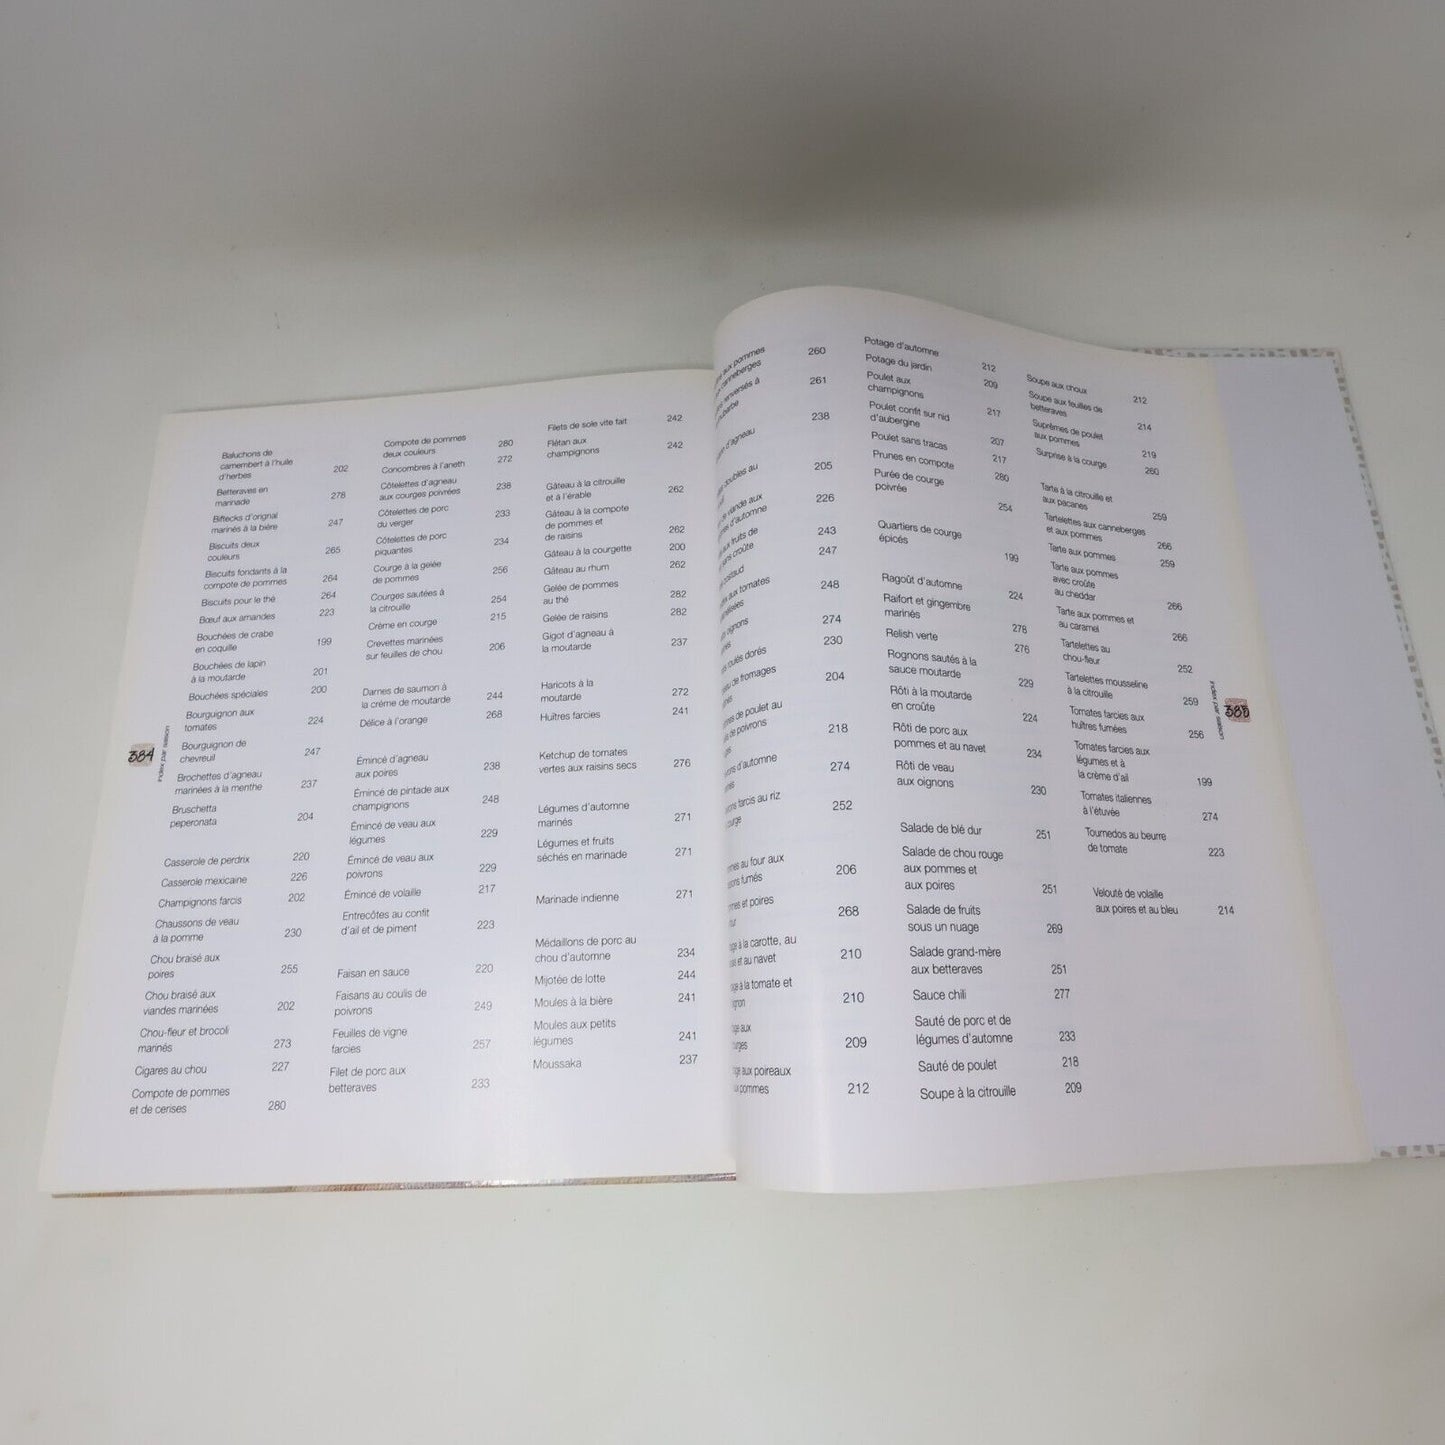 Baluchons de
camembert à l'huile
d'herbes 202
Betteraves en
marinade 278
Biftecks d'orignal
marinés à la bière 247
Biscuits deux
couleurs 265
Biscuits fondants à la
compote de pommes 264
Biscuits pour le thé 264
Bœuf aux amandes 223
Bouchées de crabe
en coquille 199
Bouchées de lapin
à la moutarde 201
Bouchées spéciales 200
Bourguignon aux
tomates 224
Bourguignon de
chevreuil 247
Brochettes d'agneau
marinées à la menthe 237
Bruschetta
peperonata 204
Casserole de perdrix 220
Casserole mexicaine 226
Champignons farcis 202
Chaussons de veau
à la pomme 230
Chou braisé aux
poires 255
Chou braisé aux
viandes marinées 202
Chou-fleur et brocoli
marinés 273
Cigares au chou 227
Compote de pommes
et de cerises 280
384
index par saison
Compote de pommes
deux couleurs 280
Concombres à l'aneth 272
Côtelettes d'agneau
aux courges poivrées 238
Côtelettes de porc
du verger 233
Côtelettes de porc
piquantes 234
Courge à la gelée
de pommes 256
Courges sautées à
la citrouille 254
Crème en courge 215
Crevettes marinées
sur feuilles de chou 206
Darnes de saumon à
la crème de moutarde 244
Délice à l'orange 268
Émincé d'agneau
aux poires 238
Émincé de pintade aux
champignons 248
Émincé de veau aux
légumes 229
Émincé de veau aux
poivrons 229
Émincé de volaille 217
Entrecôtes au confit
d'ail et de piment 223
Faisan en sauce 220
Faisans au coulis de
poivrons 249
Feuilles de vigne
farcies 257
Filet de porc aux
betteraves 233
Filets de sole vite fait 242
Flétan aux
champignons 242
Gâteau à la citrouille
et à l'érable 262
Gâteau à la compote
de pommes et
de raisins 262
Gâteau à la courgette 200
Gâteau au rhum 262
Gelée de pommes
au thé 282
Gelée de raisins 282
Gigot d'agneau à
la moutarde 237
Haricots à la
moutarde 272
Huîtres farcies 241
Ketchup de tomates
vertes aux raisins secs 276
Légumes d'automne
marinés 271
Légumes et fruits
séchés en marinade 271
Marinade indienne 271
Médaillons de porc au
chou d'automne 234
Mijotée de lotte 244
Moules à la bière 241
Moules aux petits
légumes 241
Moussaka 237
aux pommes
canneberges 260
renversés à
261
d'agneau 238
doubles au
205
de viande aux
d'automne 226
aux fruits de
sans croûte 243
247
aux tomates
248
oignons
274
roulés dorés 230
de fromages
204
de poulet au
de poivrons
218
d'automne
274
farcis au riz
courge 252
au four aux
fumés 206
et poires
268
à la carotte, au
et au navet 210
à la tomate et
210
aux
209
aux poireaux
pommes 212
Potage d'automne 212
Potage du jardin 209
Poulet aux
champignons 217
Poulet confit sur nid
d'aubergine 207
Poulet sans tracas 217
Prunes en compote 280
Purée de courge
poivrée 254
Quartiers de courge
épicés 199
Ragoût d'automne 224
Raifort et gingembre
marinés 278
Relish verte 276
Rognons sautés à la
sauce moutarde 229
Rôti à la moutarde
en croûte 224
Rôti de porc aux
pommes et au navet 234
Rôti de veau
aux oignons 230
Salade de blé dur 251
Salade de chou rouge
aux pommes et
aux poires 251
Salade de fruits
sous un nuage 269
Salade grand-mère
aux betteraves 251
Sauce chili 277
Sauté de porc et de
légumes d'automne 233
Sauté de poulet 218
Soupe à la citrouille 209
Soupe aux choux 212
Soupe aux feuilles de
betteraves 214
Suprêmes de poulet
aux pommes 219
Surprise à la courge 260
Tarte à la citrouille et
aux pacanes 259
Tartelettes aux canneberges
et aux pommes 266
Tarte aux pommes 259
Tarte aux pommes
avec croûte
au cheddar 266
Tarte aux pommes et
au caramel 266
Tartelettes au
chou-fleur 252
Tartelettes mousseline
à la citrouille 259
Tomates farcies aux
huîtres fumées 256
Tomates farcies aux
légumes et à
la crème d'ail 199
Tomates italiennes
à l'étuvée 274
Tournedos au beurre
de tomate 223
Velouté de volaille
aux poires et au bleu 214
index par saison
385